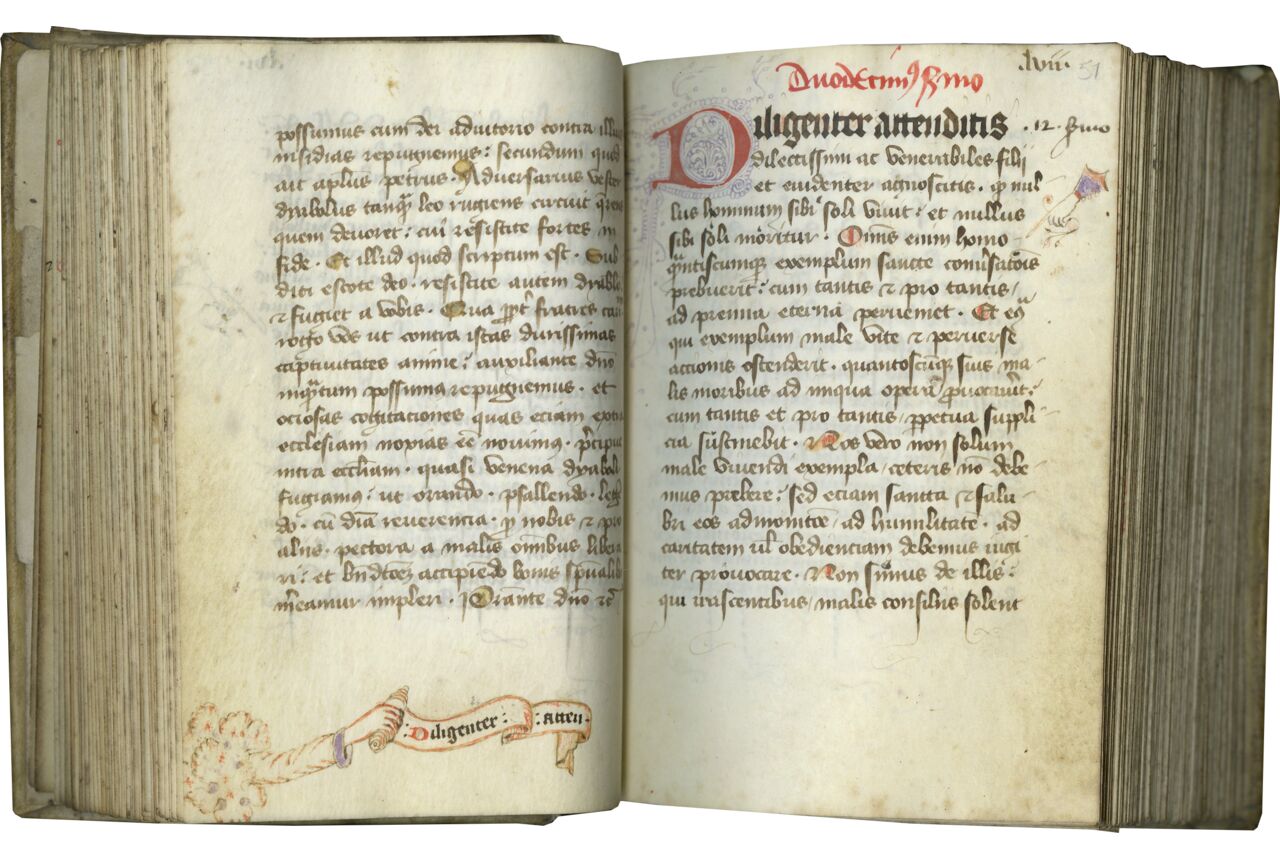 possumus cum dei adiutorio contra illius
insidias repugnemus: secundum quod
ait aplus petrus. Adversarius vester
dyabolus tanq̃ leo rugiens circuit querens
quem devoret: cui resistite fortes in
fide. Et illud quod scriptum est. Sub
diti estote deo. resistite autem dyabolo
⁊ fugiet a vobis. fratres
vos ut contra istas durissimas
captivitates anime: auxiliante dño
inq̃tum possumꝰ repugnemus. et
ociosas cogitationes quas eciam extra
ecclesiam noxias eẽ novimꝰ. p̃cipue
intra eccl̃iam. quasi venena dyaboli
fugiamꝰ: ut orando. psallendo. legẽ
do. cũ reverencia. nobis ⁊ pro
aliis. pectora a malis omĩbus libera
ri: et accipiẽdo bonis sp̃ualibꝰ
m̃eamur impleri. P̃rante dño ⁊c̃
Diligenter: atten.
Duodecimꝰ s̃mo
.lviii. 51
Diligenter attenditis .12. s̃mo
dilectissimi ac venerabiles filii
et evidenter agnoscitis. nul
lus hominum sibi soli vivit: et nullus
sibi soli moritur. Omnis enim homo
q̃ntiscumqꝫ exemplum sancte conṽsatõis
prebuerit: cum tantis ⁊ pro tantis/
ad premia eterna perveniet. Et
qui exemplum male vite ⁊ perverse
accionis ostenderit. quantoscũqꝫ suis ma
lis moribus ad iniqua opera
cum tantis et pro tantis/ ꝑpetua suppli
cia sustinebit. Nos vero non solum
male vivendi exempla/ ceteris nõ debe
mus prebere: sed eciam sancta ⁊ salu
bri eos admonitõe/ ad humilitatẽ. ad
caritatem vł obedienciam debemus iugi
ter provocare. Non simus de illis:
qui irascentibus/ malis consiliis solent